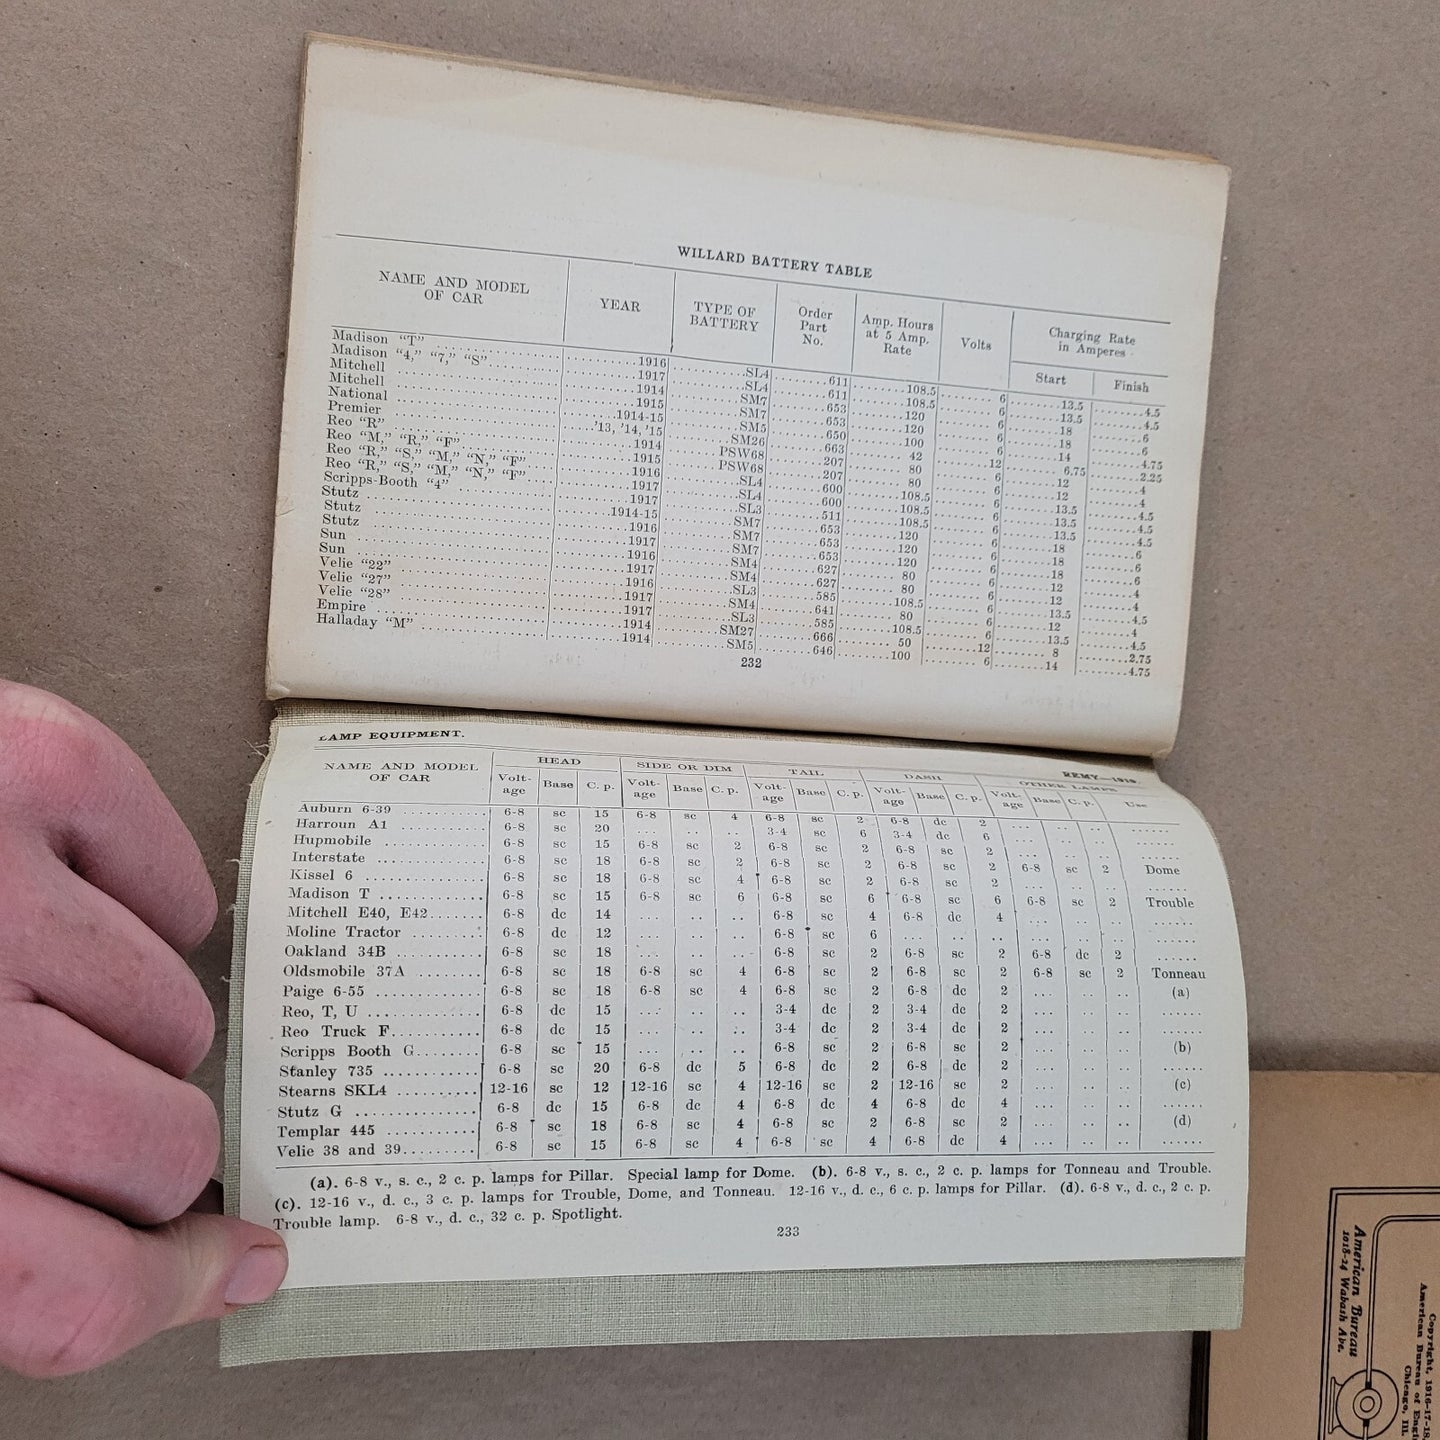 WILLARD BATTERY TABLE
NAME AND MODEL OF CAR YEAR TYPE OF BATTERY Order Part No. Amp. Hours at 5 Amp. Rate Volts Charging Rate in Amperes Start Finish
Madison "T" 1916 SL4 611 108.5 6 13.5 4.5
Madison "4," "7," "S" 1917 SL4 611 108.5 6 13.5 4.5
Mitchell 1914 SM7 653 120 6 18 6
Mitchell 1915 SM7 653 120 6 18 6
National 1914-15 SM5 650 100 6 14 4.75
Premier '13, '14, '15 SM26 663 42 12 6.75 2.25
Reo "R" 1914 PSW68 207 80 6 12 4
Reo "M," "R," "F" 1915 PSW68 207 80 6 12 4
Reo "R," "S," "M," "N," "F" 1916 SL4 600 108.5 6 13.5 4.5
Reo "R," "S," "M," "N," "F" 1917 SL4 600 108.5 6 13.5 4.5
Scripps-Booth "4" 1917 SL3 511 108.5 6 13.5 4.5
Stutz 1914-15 SM7 653 120 6 18 6
Stutz 1916 SM7 653 120 6 18 6
Stutz 1917 SM7 653 120 6 18 6
Sun 1916 SM4 627 80 6 12 4
Sun 1917 SM4 627 80 6 12 4
Velie "22" 1916 SL3 585 108.5 6 13.5 4.5
Velie "27" 1917 SM4 641 80 6 12 4
Velie "28" 1917 SL3 585 108.5 6 13.5 4.5
Empire 1914 SM27 666 50 12 8 2.75
Halladay "M" 1914 SM5 646 100 6 14 4.75
232
LAMP EQUIPMENT. REMY—1919.
NAME AND MODEL OF CAR HEAD SIDE OR DIM TAIL DASH OTHER LAMPS
Volt-age Base C. p. Volt-age Base C. p. Volt-age Base C. p. Volt-age Base C. p. Volt-age Base C. p. Use
Auburn 6-39 6-8 sc 15 6-8 sc 4 6-8 sc 2 6-8 dc 2
Harroun A1 6-8 sc 20 3-4 sc 6 3-4 dc 6
Hupmobile 6-8 sc 15 6-8 sc 2 6-8 sc 2 6-8 sc 2
Interstate 6-8 sc 18 6-8 sc 2 6-8 sc 2 6-8 sc 2 6-8 sc 2 Dome
Kissel 6 6-8 sc 18 6-8 sc 4 6-8 sc 2 6-8 sc 2
Madison T 6-8 sc 15 6-8 sc 6 6-8 sc 6 6-8 sc 6 6-8 sc 2 Trouble
Mitchell E40, E42 6-8 dc 14 6-8 sc 4 6-8 dc 4
Moline Tractor 6-8 dc 12 6-8 sc 6
Oakland 34B 6-8 sc 18 6-8 sc 2 6-8 sc 2 6-8 dc 2
Oldsmobile 37A 6-8 sc 18 6-8 sc 4 6-8 sc 2 6-8 sc 2 6-8 sc 2 Tonneau
Paige 6-55 6-8 sc 18 6-8 sc 4 6-8 sc 2 6-8 dc 2 (a)
Reo, T, U 6-8 dc 15 3-4 dc 2 3-4 dc 2
Reo Truck F 6-8 dc 15 3-4 dc 2 3-4 dc 2
Scripps Booth G 6-8 sc 15 6-8 sc 2 6-8 sc 2 (b)
Stanley 735 6-8 sc 20 6-8 dc 5 6-8 dc 2 6-8 dc 2
Stearns SKL4 12-16 sc 12 12-16 sc 4 12-16 sc 2 12-16 sc 2 (c)
Stutz G 6-8 dc 15 6-8 dc 4 6-8 dc 4 6-8 dc 4
Templar 445 6-8 sc 18 6-8 sc 4 6-8 sc 2 6-8 sc 2 (d)
Velie 38 and 39 6-8 sc 15 6-8 sc 4 6-8 sc 4 6-8 dc 4
(a). 6-8 v., s. c., 2 c. p. lamps for Pillar. Special lamp for Dome. (b). 6-8 v., s. c., 2 c. p. lamps for Tonneau and Trouble.
(c). 12-16 v., d. c., 3 c. p. lamps for Trouble, Dome, and Tonneau. 12-16 v., d. c., 6 c. p. lamps for Pillar. (d). 6-8 v., d. c., 2 c. p.
Trouble lamp. 6-8 v., d. c., 32 c. p. Spotlight.
233
American Bureau
1018-24 Wabash Ave.
Copyright, 1916-17-18,
American Bureau of
Chicago, Ill.